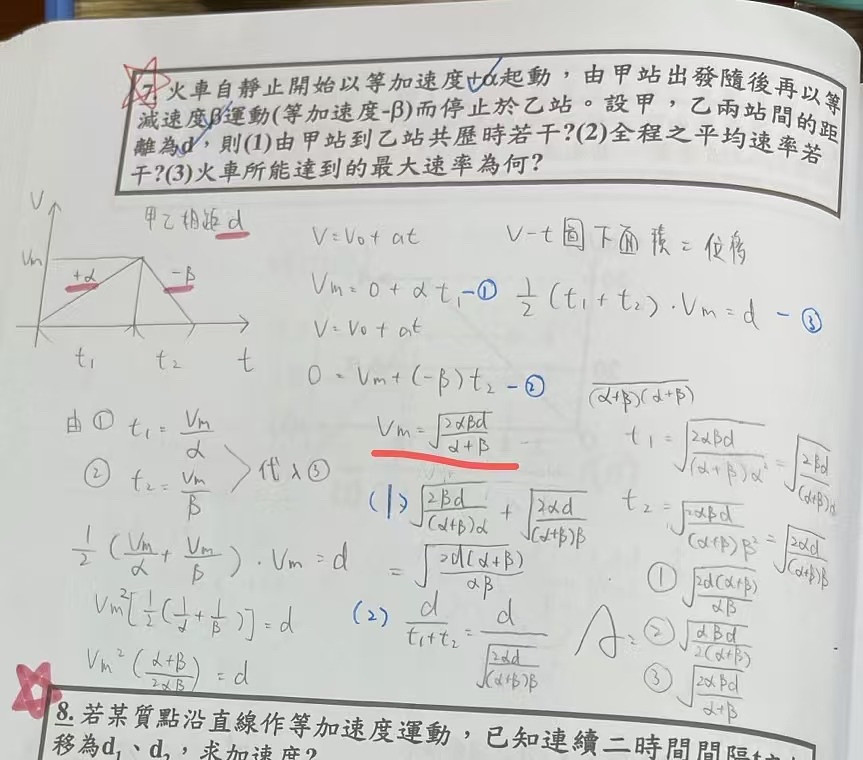 7. 火車自靜止開始以等加速度+α起動，由甲站出發隨後再以等
減速度β運動(等加速度-β)而停止於乙站。設甲，乙兩站間的距
離為d，則(1)由甲站到乙站共歷時若干?(2)全程之平均速率若
干?(3)火車所能達到的最大速率為何?
甲乙相距d
V
Vm
+α
-β
t₁ t₂ t
V=V₀+at
Vm=0+αt₁-①
V=V₀+at
0=Vm+(-β)t₂-②
V-t圖下面積=位移
½(t₁+t₂)·Vm=d-③
由① t₁=Vm/α
② t₂=Vm/β
代入③
½(Vm/α+Vm/β)·Vm=d
Vm²[½(1/α+1/β)]=d
Vm²((α+β)/2αβ)=d
Vm=√(2αβd/(α+β))
(1) √(2βd/((α+β)α))+√(2αd/((α+β)β))
=√(2d(α+β)/αβ)
(2) d/(t₁+t₂)=d/√(2αd/((α+β)β))
(α+β)(α+β)
t₁=√(2αβd/((α+β)α²))=√(2βd/((α+β)α))
t₂=√(2αβd/((α+β)β²))=√(2αd/((α+β)β))
A:
①√(2d(α+β)/αβ)
②√(αβd/2(α+β))
③√(2αβd/(α+β))
8. 若某質點沿直線作等加速度運動，已知連續二時間間隔
移為d₁、d₂，求加速度?